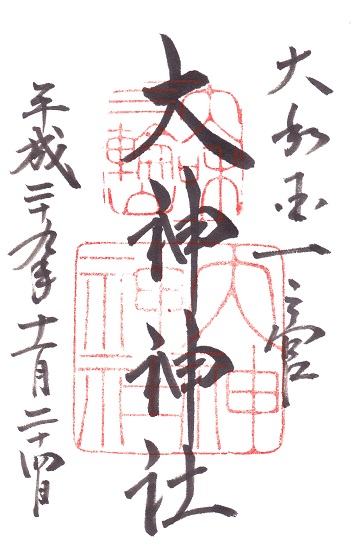 大和国一之宮
大神神社
平成二十九年十一月二十四日
三輪山
大神神社